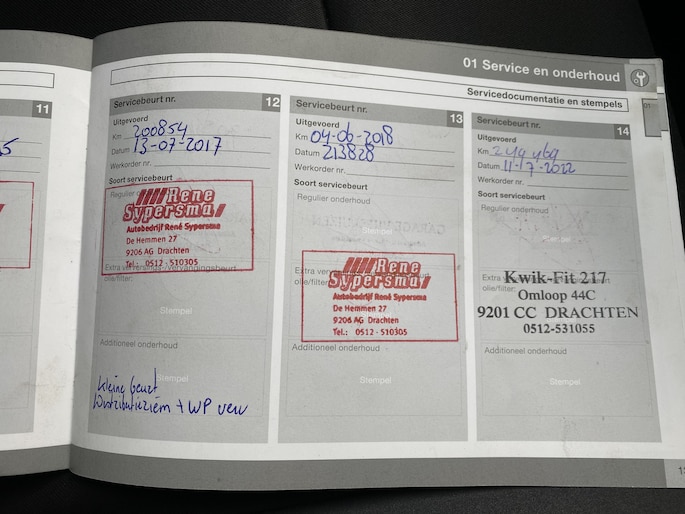 01 Service en onderhoud
Servicedocumentatie en stempels
11
Servicebeurt nr. 12
Uitgevoerd
Km 200854
Datum 13-07-2017
Werkorder nr.
Soort servicebeurt
Regulier
Rene
Sypersma
Autobedrijf René Sypersma
De Hemmen 27
9206 AG Drachten
Tel.: 0512 - 510305
Extra versings-/vervangingsbeurt
olie/filter:
Stempel
Additioneel onderhoud
Stempel
Kleine beurt
Distributieriem + WP verv
Servicebeurt nr. 13
Uitgevoerd
Km 04-06-2018
Datum 213828
Werkorder nr.
Soort servicebeurt
Regulier onderhoud
Stempel
Rene
Sypersma
Autobedrijf René Sypersma
De Hemmen 27
9206 AG Drachten
Tel.: 0512 - 510305
Additioneel onderhoud
Stempel
Servicebeurt nr. 14
Uitgevoerd
Km
Datum 11-7-2022
Werkorder nr.
Soort servicebeurt
Regulier onderhoud
Stempel
Kwik-Fit 217
Omloop 44C
9201 CC DRACHTEN
0512-531055
Additioneel onderhoud
Stempel